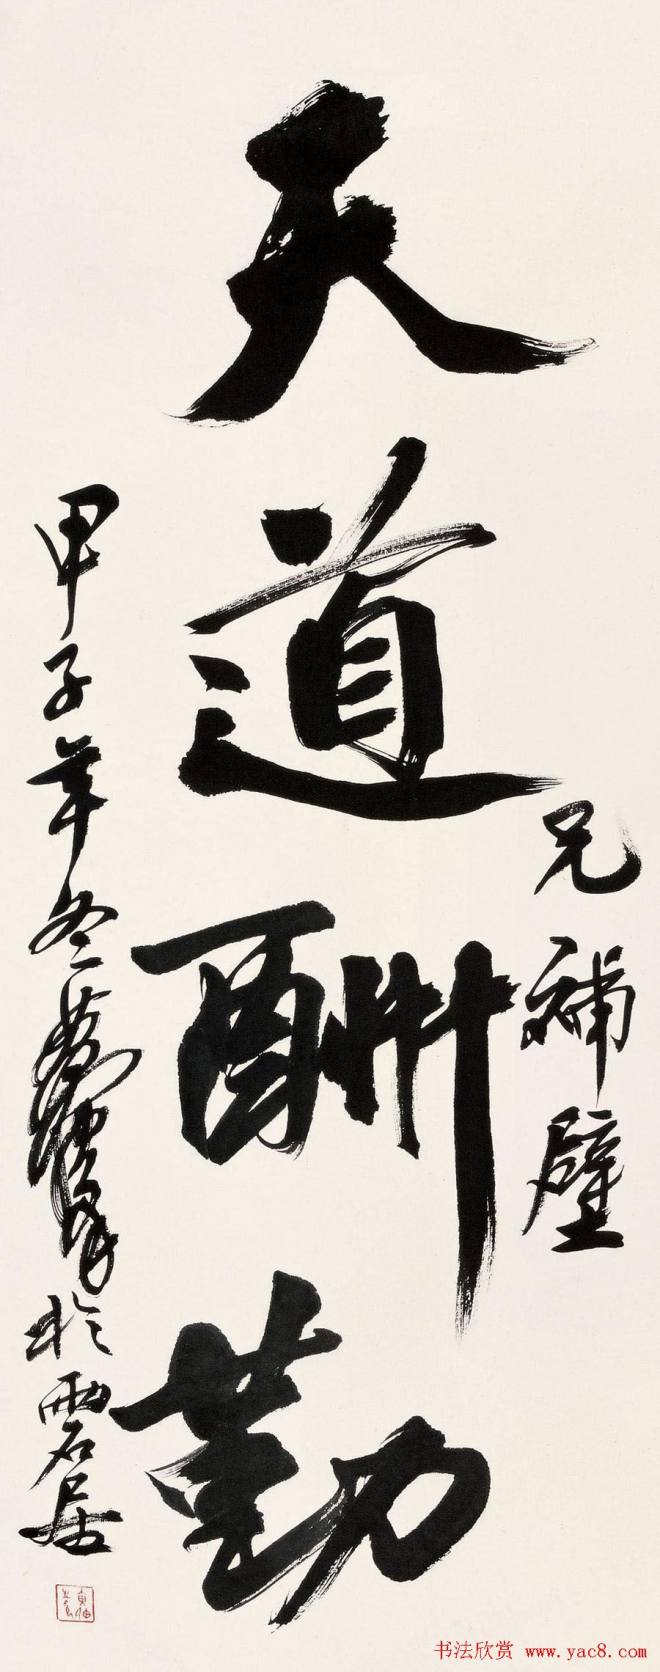 兄補壁
天道酬勤
甲子年冬 於雨石居
书法欣赏 www.yac8.com